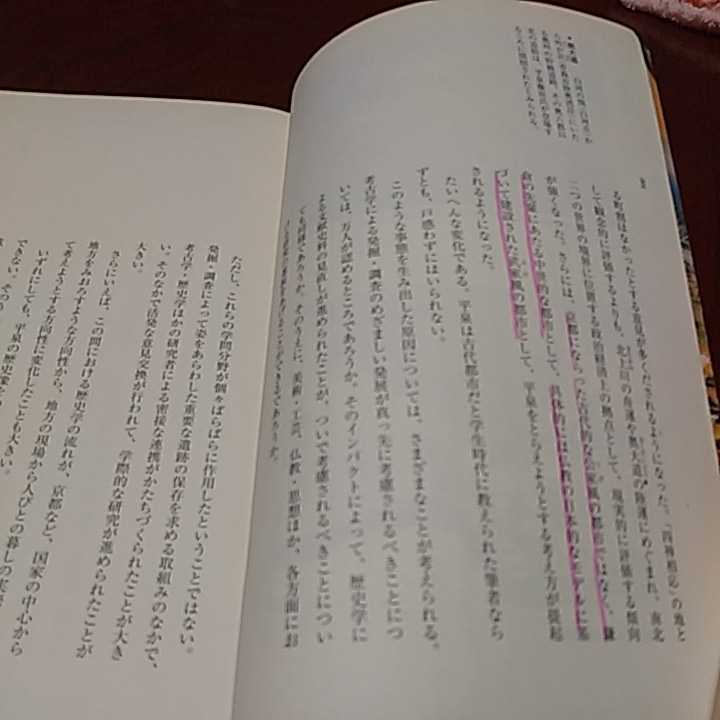 る町割はなかったとする意見が多くだされるようになった。「四神相応」の地と
して観念的に評価するよりも、北上川の舟運や奥大道の陸運にめぐまれ、南北
二つの世界の境界に位置する政治経済上の拠点として、現実的に評価する傾向
が強くなった。さらには、京都にならった古代的な公家風の都市ではなく、鎌
倉の先駆にあたる中世的な都市として、具体的には仏教の日本的なモデルに基
づいて建設された武家風の都市として、平泉をとらえようとする考え方が提起
されるようになった。
たいへんな変化である。平泉は古代都市だと学生時代に教えられた筆者なら
ずとも、戸惑わずにはいられない。
このような事態を生み出した原因については、さまざまなことが考えられる。
考古学による発掘・調査のめざましい発展が真っ先に考慮されるべきことにつ
いては、万人が認めるところであろうか。そのインパクトによって、歴史学に
よる文献史料の見直しが進められたことが、ついで考慮されるべきことについ
ても同様であろうか。そのうえに、美術・工芸、仏教・思想ほか、各方面にお
ることができるであろうか。
ただし、これらの学問分野が個々ばらばらに作用したということではない。
発掘・調査によって姿をあらわした重要な遺跡の保存を求める取組みのなかで、
考古学・歴史学ほかの研究者による密接な連携がかたちづくられたことが大き
い。そのなかで活発な意見交換が行われて、学際的な研究が進められたことが
大きい。
さらにいえば、この間における歴史学の流れが、京都など、国家の中心から
地方をみおろすような方向性から、地方の現場から人びとの暮しの実
て考えようとする方向性に変化したことも大きい。
いずれにしても、平泉の歴史像を
できない。そのう